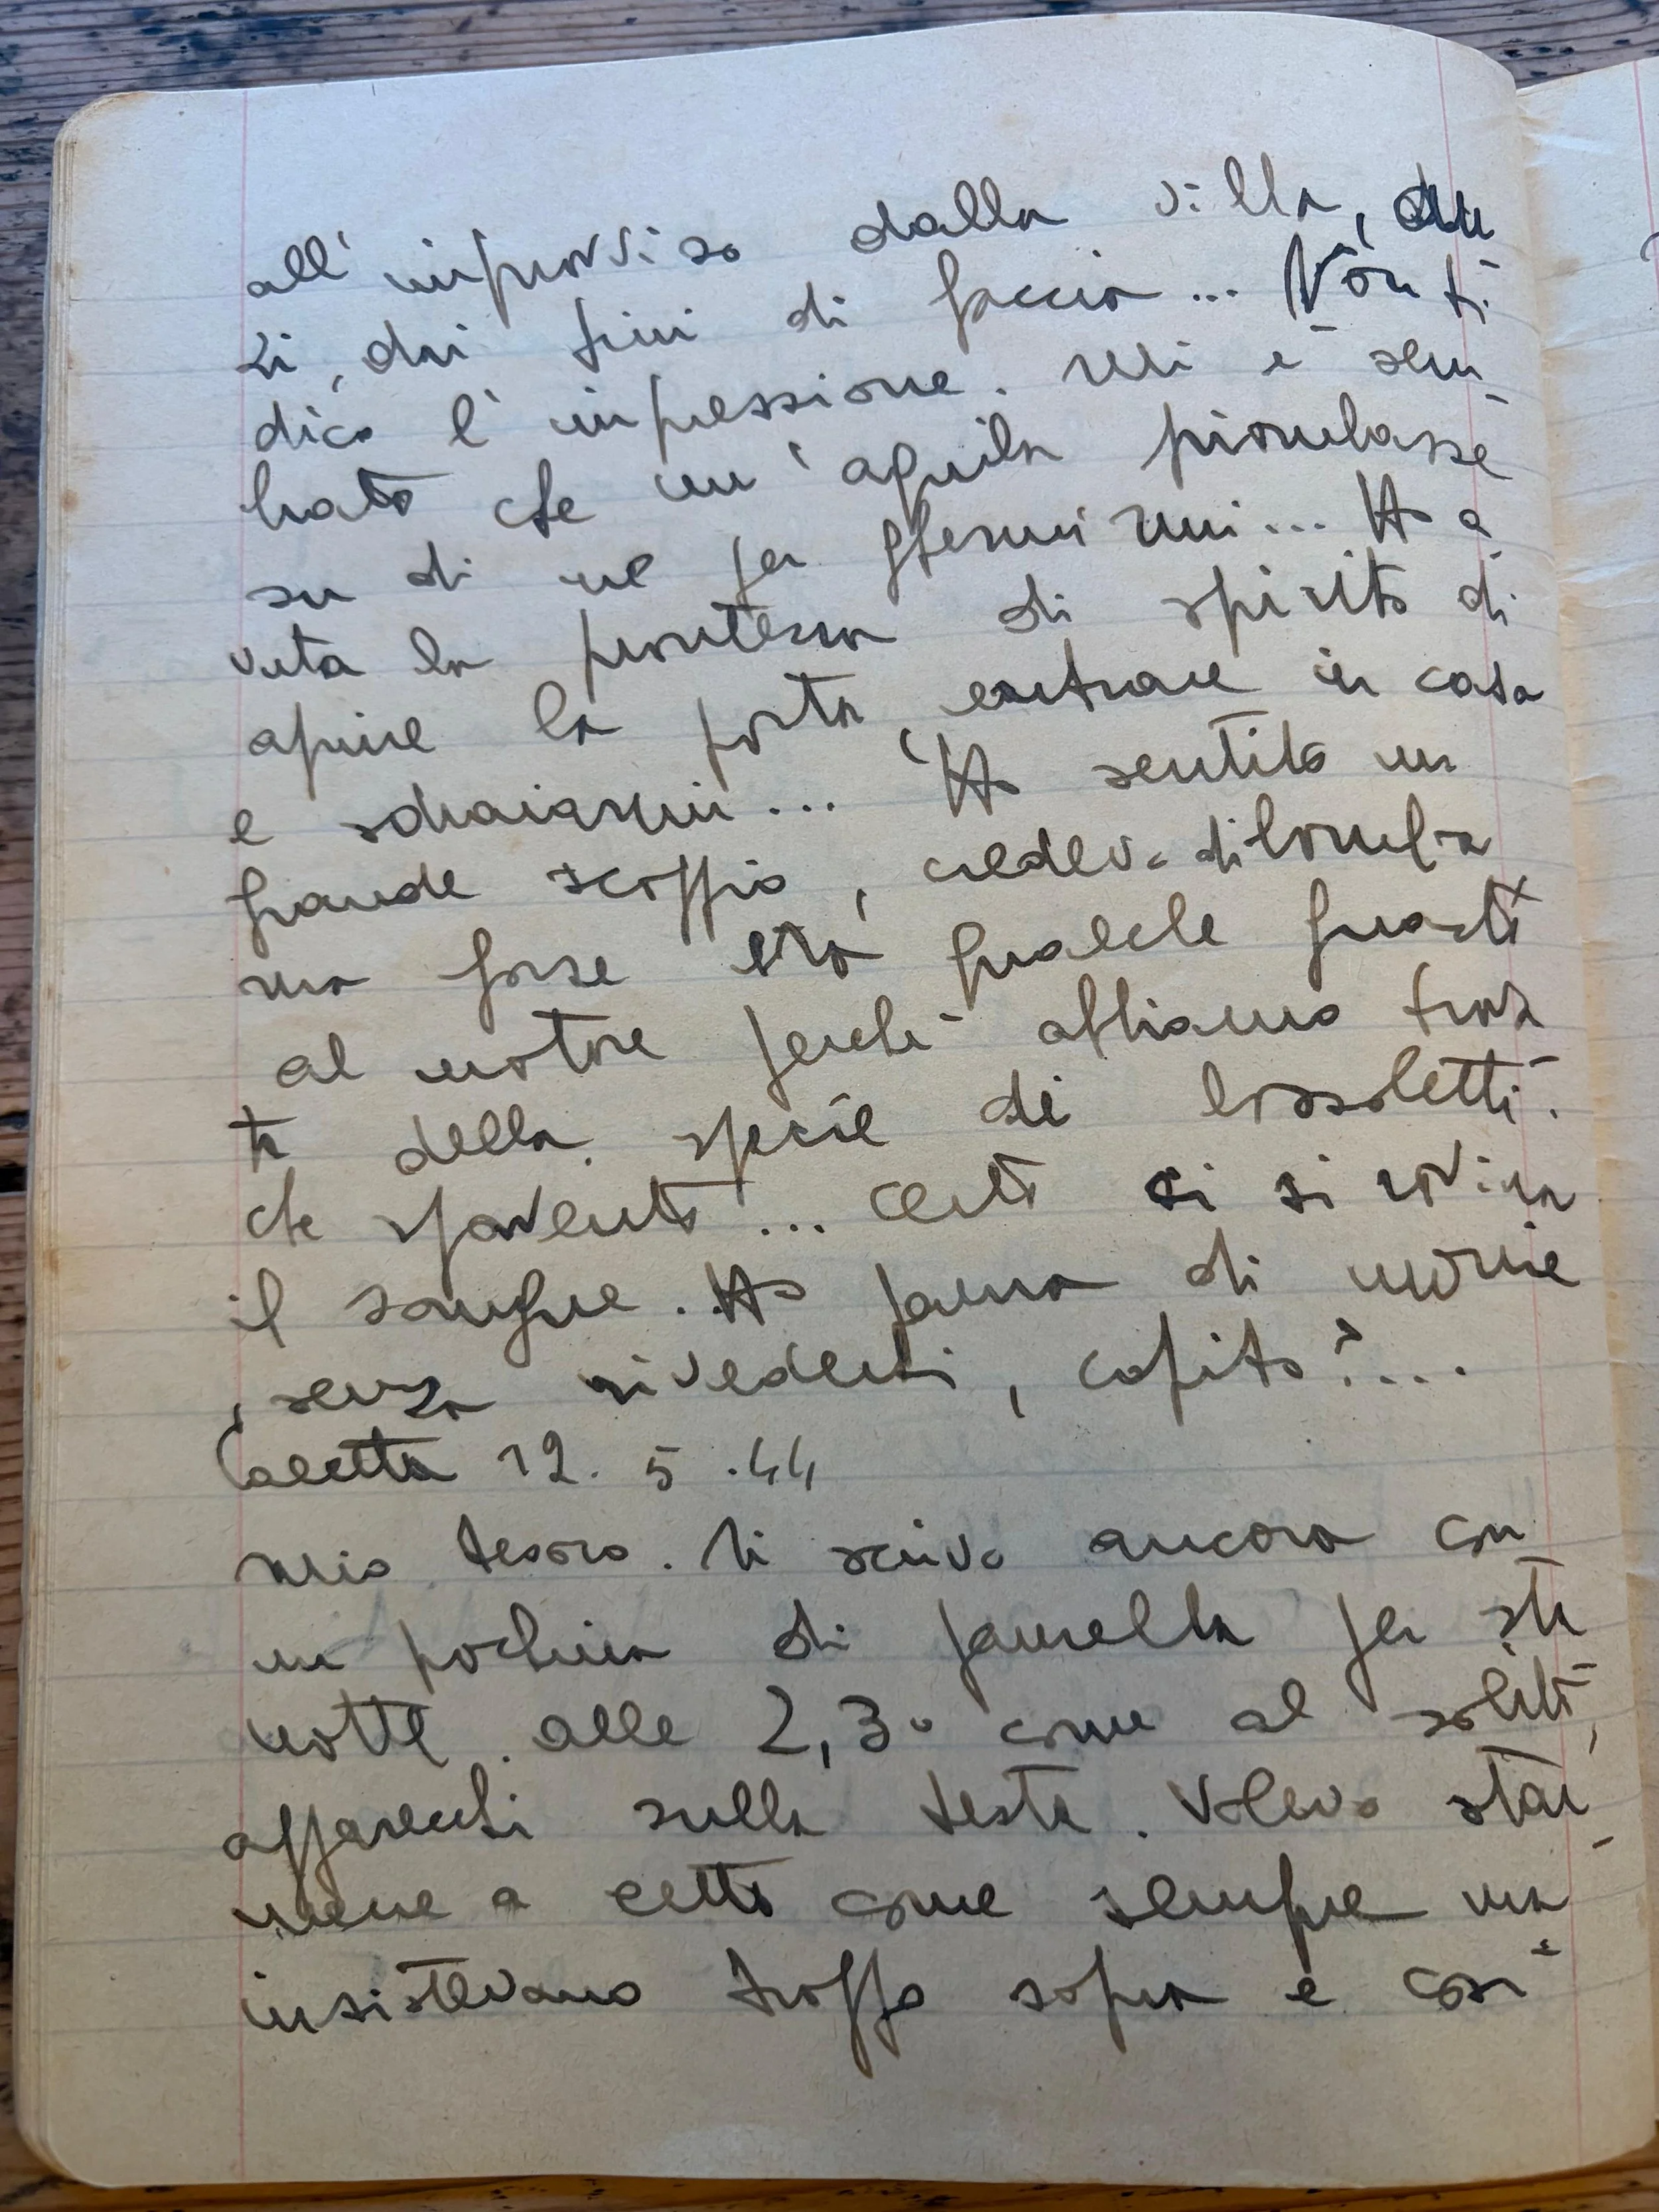 all'improvviso dalla villa, du
zi, dai pini di faccia... Non ti
dico l'impressione. Mi è sem
brato che un'aquila piombasse
su di me per ghermirmi... Ho a
vuta la prontezza di spirito di
aprire la porta, entrare in casa
e sdraiarmi... Ho sentito un
grande scoppio, credevo di bomba
ma forse era qualche guasto
al motore perchè abbiamo trova
te della specie di bossoletti.
che spavento... Certo ci si rovina
il sangue. Ho paura di morire
senza rivederti, capito?....
Casetta 12.5.44
Mio tesoro. Ti scrivo ancora con
un pochino di paurella per sta
notte. alle 2,30 come al solito,
apparecchi sulla testa. Volevo star
mene a letto come sempre ma
insistevano troppo sopra e così